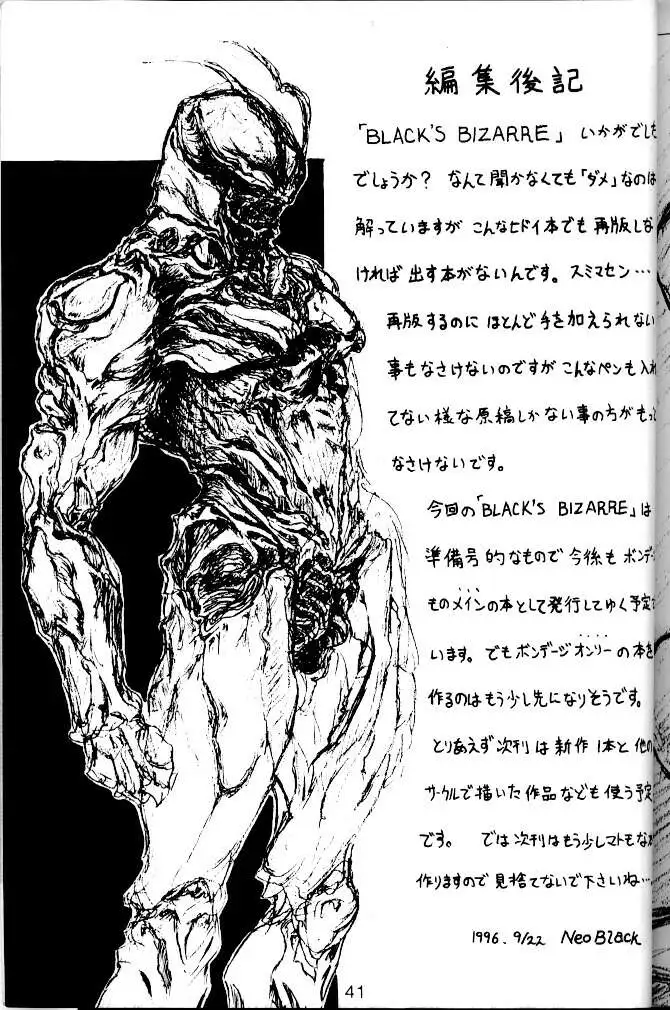 編集後記
「BLACK'S BIZARRE」いかがでし
でしょうか? なんて聞かなくても「ダメ」なのは
解っていますが こんなヒドイ本でも 再版しな
ければ 出す本がないんです。スミマセン…
再版するのに ほとんど手を加えられない
事もなさけないのですが こんなペンも入れ
てない様な原稿しかない事の方がもっ
なさけないです。
今回の「BLACK'S BIZARRE」は
準備号的なもので 今後も ボンデー
ものメインの本として発行してゆく予定で
います。でもボンデージオンリーの本を
作るのはもう少し先になりそうです。
とりあえず次刊は新作1本と他の
サークルで描いた作品なども使う予定
です。 では次刊はもう少しマトモな
作りますので見捨てないで下さいね…
1996.9/22 Neo Black
41